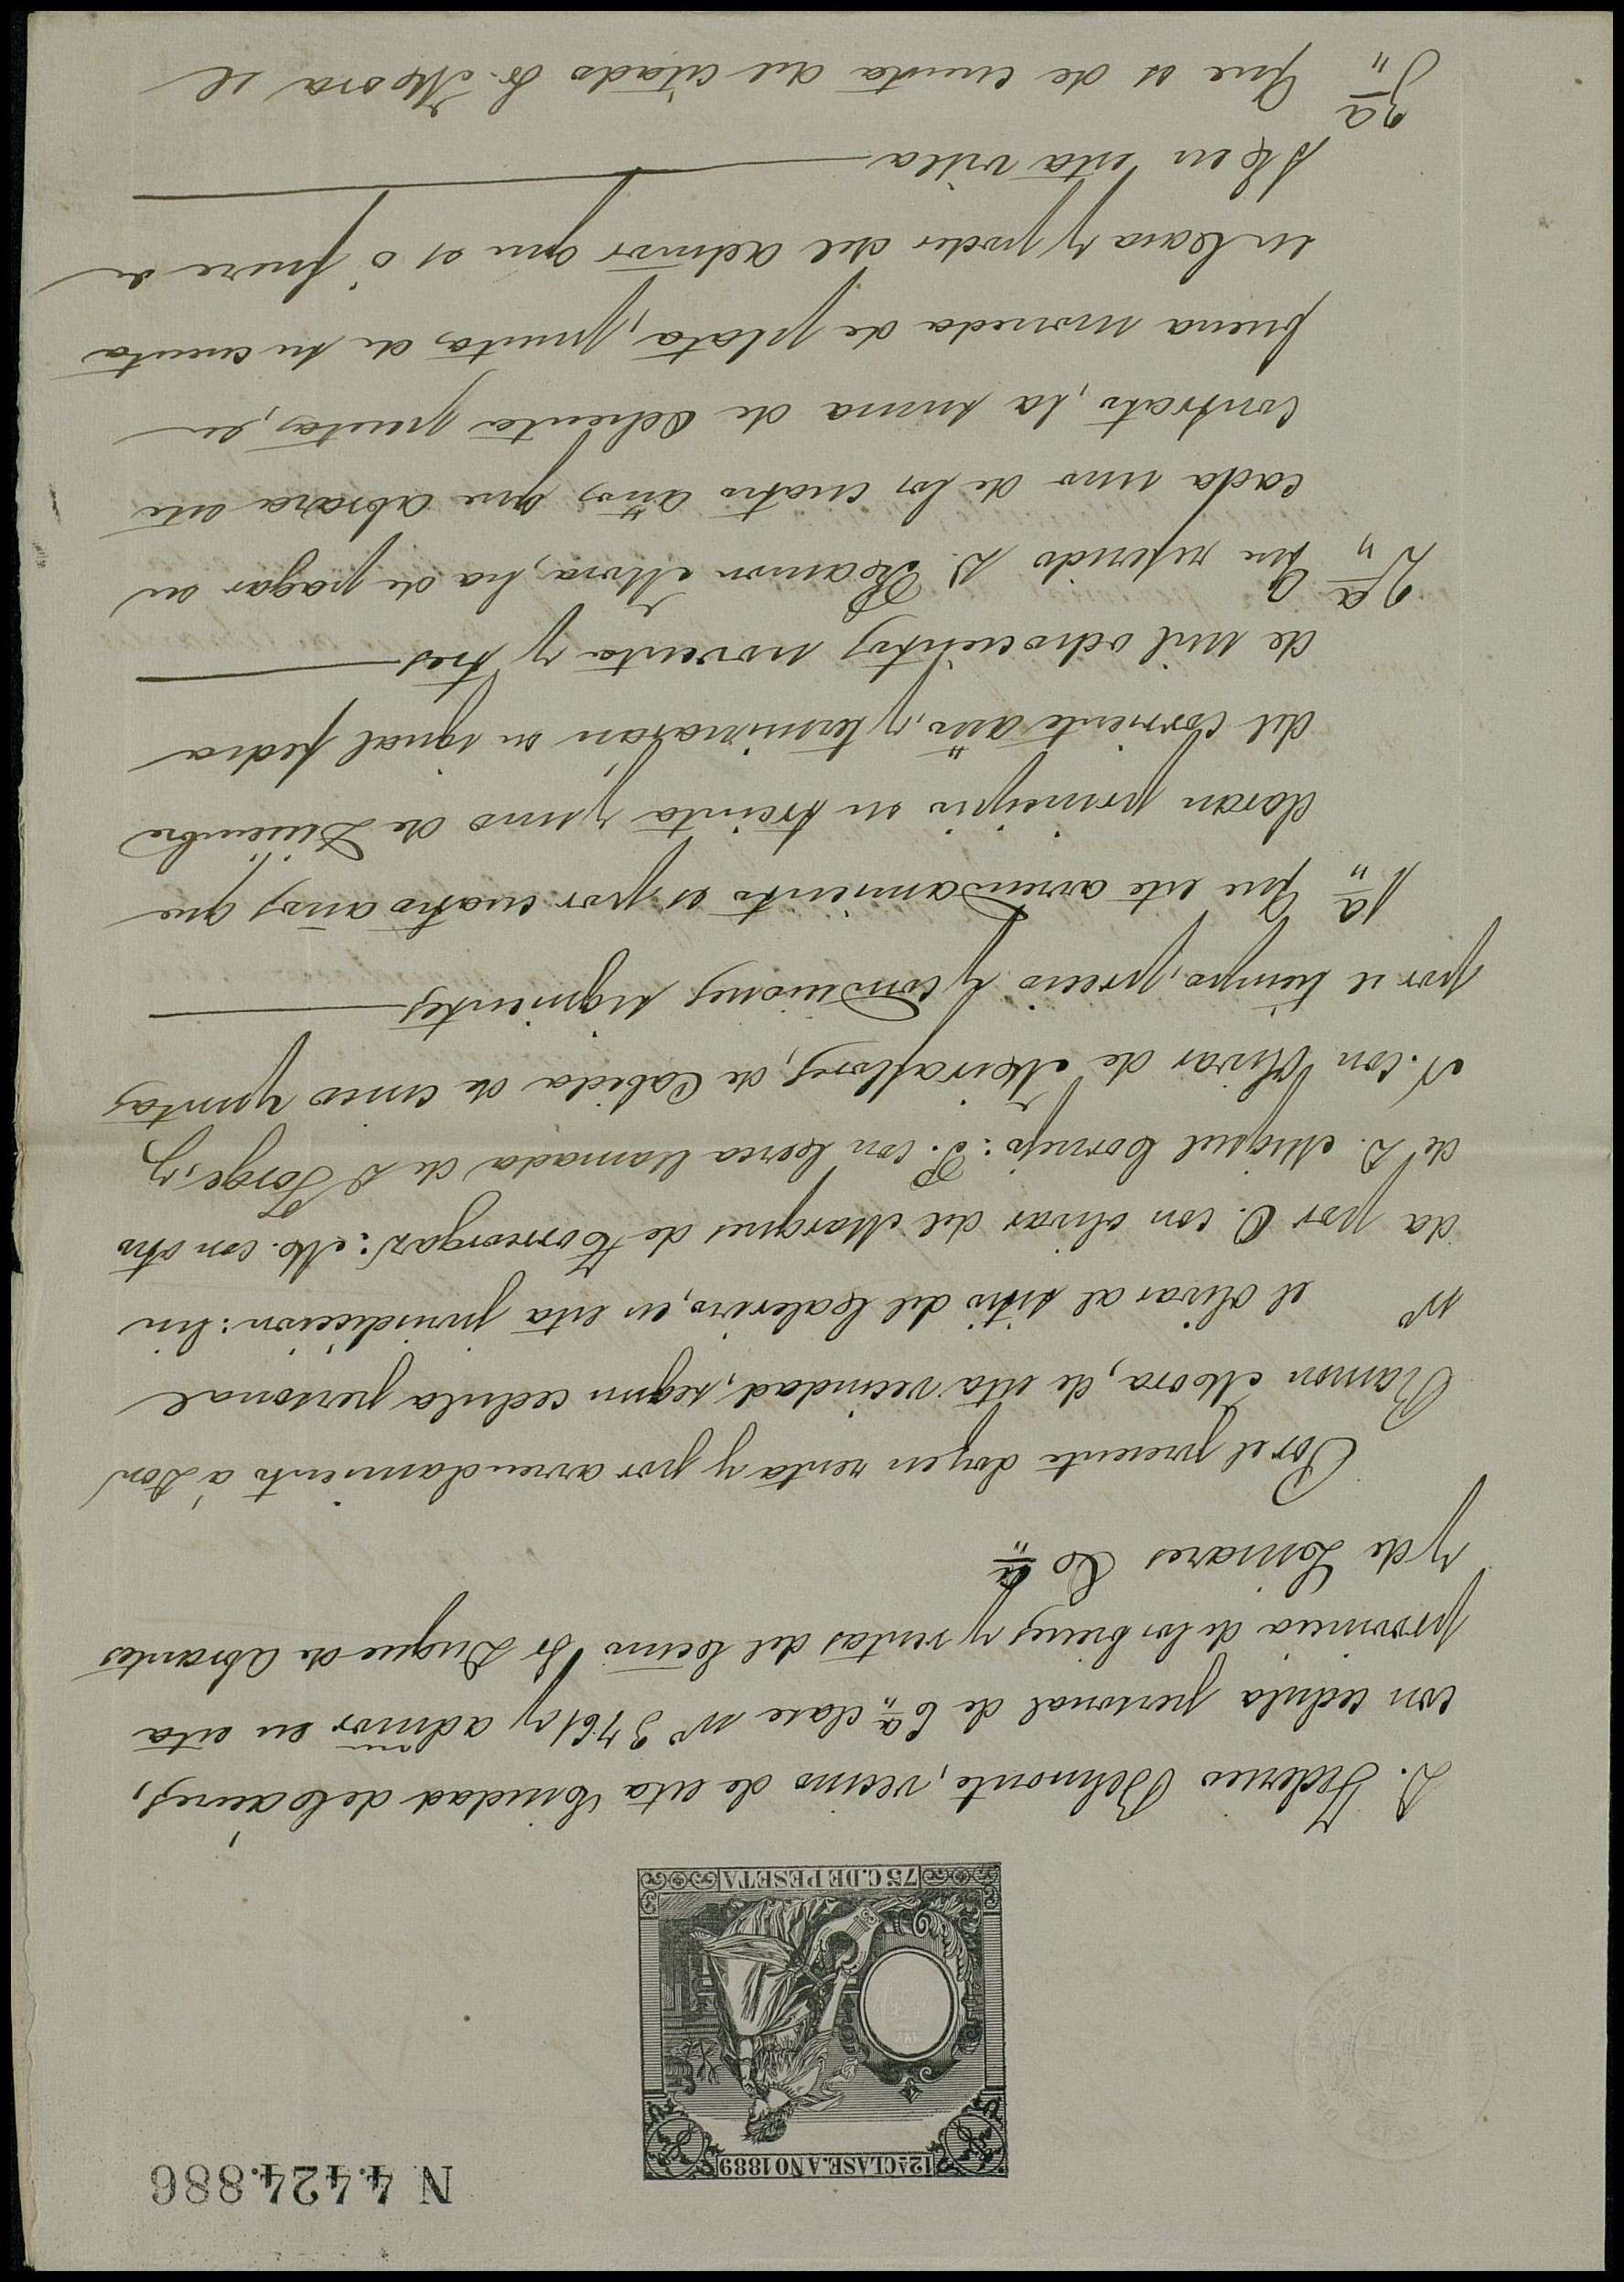 N 4.424.886
12ª CLASE. AÑO 1889
75 C. DE PESETA
D. Federico Belmonte, vecino de esta Ciudad de Cáceres,
con cédula personal de 6ª clase nº 3761 y admor en esta
provincia de los bienes y rentas del Excmo Sr Duque de Abrantes
y de Linares &ª
Por el presente doy en renta y por arrendamiento á Don
Ramon Mora, de esta vecindad, segun cedula personal
nº el olivar al sitio del Calerizo, en esta jurisdiccion: lin
da por O. con olivar del Marques de Torreorgaz: M. con otro
de D. Miguel Cornejo: P. con Cerca llamada de D Jorge, y
N. con Olivar de Miraflores, de Cabida de cinco yuntas
por el tiempo, precio y condiciones siguientes
1ª Que este arrendamiento es por cuatro años que
daran principio en treinta y uno de Diciembre
del corriente año, y terminarán en igual fecha
de mil ochocientos noventa y tres
2ª Que referido D. Ramon Mora, ha de pagar en
cada uno de los cuatro años que abraza este
contrato, la suma de Ochenta pesetas, en
buena moneda de plata, puestas de su cuenta
en Casa y poder del admor que es ó fuere de
SE en esta villa
3ª Que es de cuenta del citado Sr. Mora el